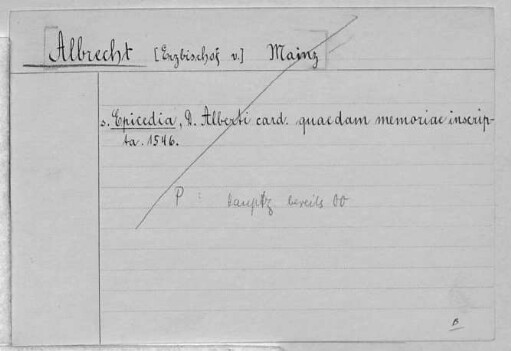 Albrecht [Erzbischof v.] Mainz
s. Epicedia, D. Alberti card. quaedam memoriae inscrip-
ta. 1546.
P : bereits
B